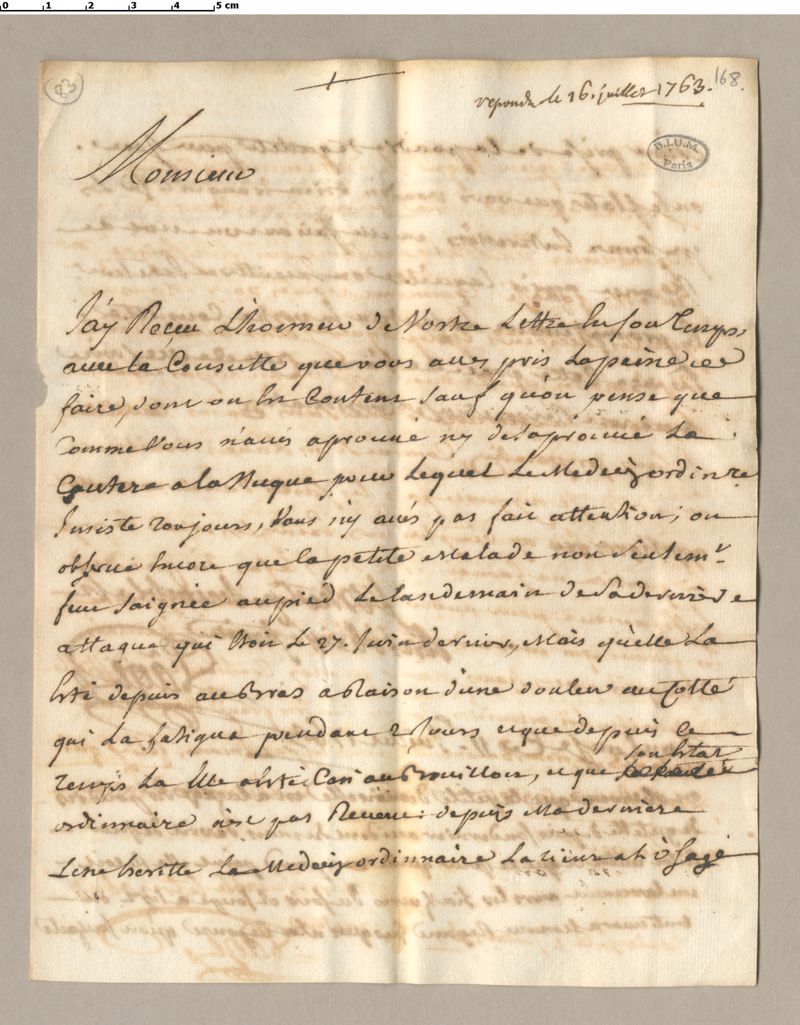 0 1 2 3 4 5 cm
83
168.
repondu le 16. juillet 1763.
B.I.U.M.
Paris
Monsieur
J'ay Reçeu L'honneur de Vostre Lettre En son Temps
avec la Consulte que vous avés pris La peine de
faire, dont on Est Content sauf qu'on pense que
Comme Vous n'avés aprouvé ny desaprouvé La
Cautere a la Nuque pour Lequel Le Medecin ordinre
Insiste toujours, Vous n'y avés pas fait attention; on
observe Encore que la petite Malade non seulemt.
fut saignée au pied Le landemain de Sa derniere
attaque qui Etoit Le 27. Juin dernier, Mais qu'elle La
Esté depuis au Bras a Raison d'une douleur au Costé
qui La fatigua pendant 2 Jours et que depuis Ce
temps La Elle a Esté au Bouillon, et que son Estat
ordinnaire n'est pas Revenu: depuis Ma derniere
Lettre Ecritte Le Medecin ordinnaire La